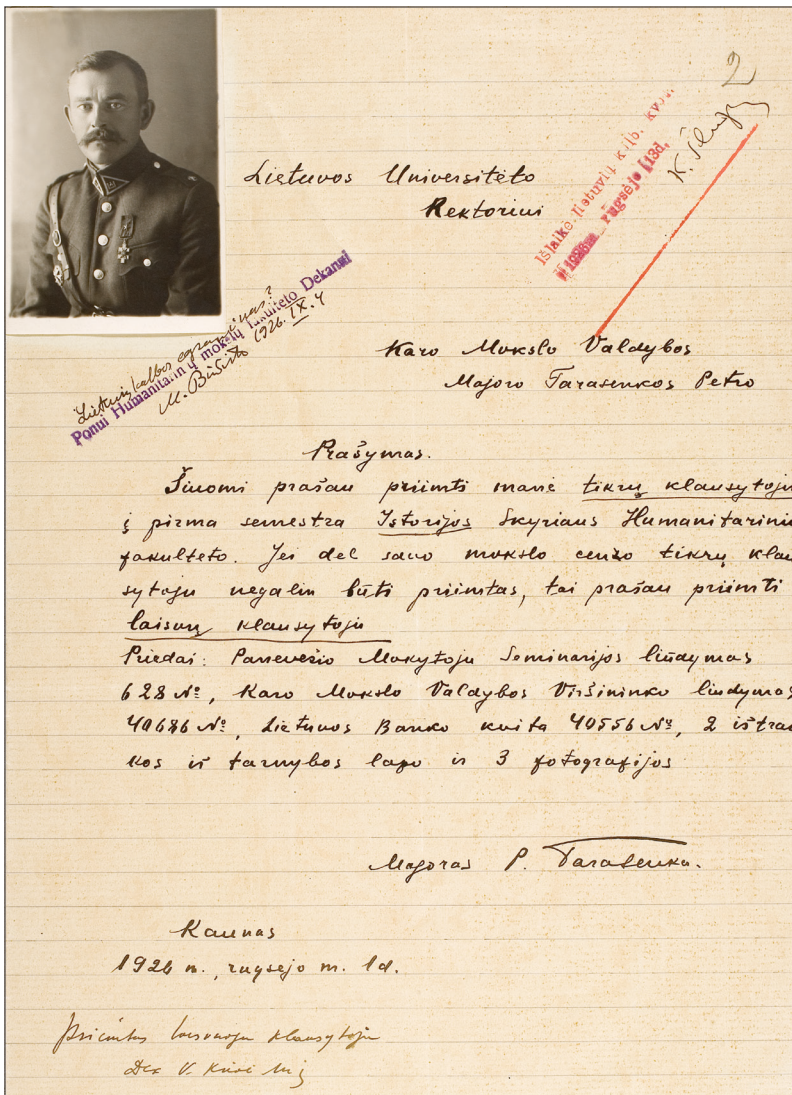 2
Lietuvos Universitėto
Rektoriui
Išlaikė lietuvių kalb. kvot.
rugsėjo 13d.
Lietuvių kalbos egzaminas?
Ponui Humanitarinių mokslų fakulteto Dekanui
1926.IX.4
Karo Mokslo Valdybos
Majoro Tarasenkos Petro
Prašymas.
Šiuomi prašau priimti manė tikrų klausytoju
į pirma semestra Istorijos Skyriaus Humanitarinio
fakulteto. Jei del savo mokslo cenzo tikrų klau
sytoju negaliu būti priimtas, tai prašau priimti
laisvų klausytoju
Priedai: Panevežio Mokytoju Seminarijos liudymas
628 №, Karo Mokslo Valdybos Viršininko liudymas
40686 №, Lietuvos Banko kvita 40556 №, 2 ištrau
kos iš tarnybos lapo ir 3 fotografijos
Majoras P. Tarasenka.
Kaunas
1926 m., rugsėjo m. 1d.
Priimtas laisvuoju klausytoju